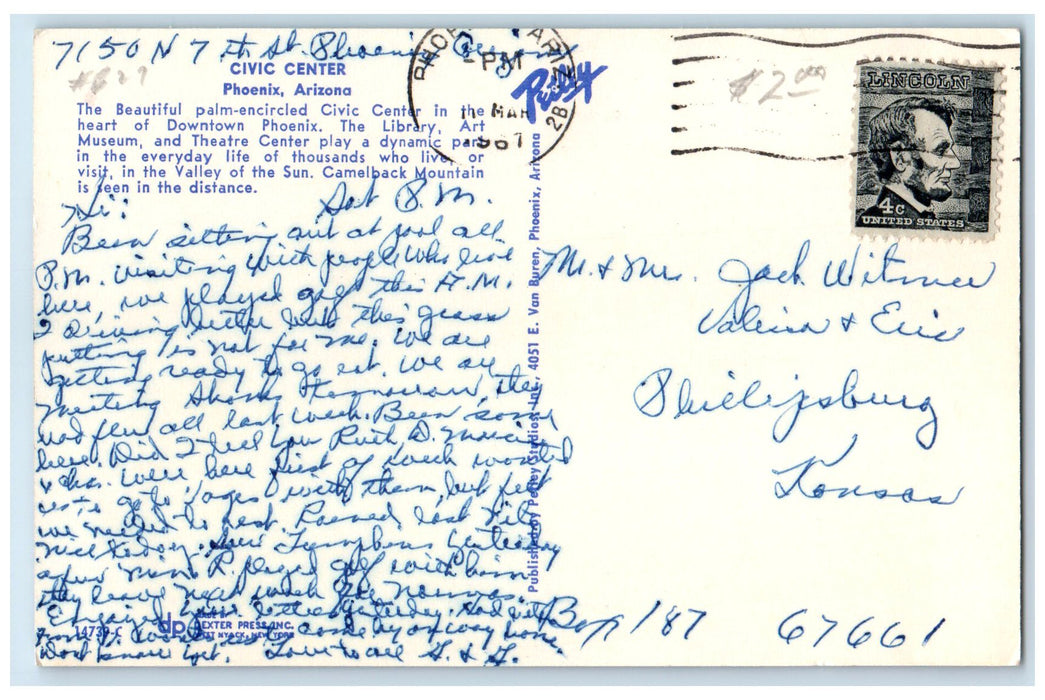 7150 N 7th St. Phoenix Arizona
#629
CIVIC CENTER
Phoenix, Arizona
The Beautiful palm-encircled Civic Center in the
heart of Downtown Phoenix. The Library, Art
Museum, and Theatre Center play a dynamic part
in the everyday life of thousands who live, or
visit, in the Valley of the Sun. Camelback Mountain
is seen in the distance.
Hi: Sat P.M.
Been sitting out at pool all
P.M. visiting with people who live
here, we played golf this A.M.
I driving better but this grass
putting is not for me. We are
getting ready to go eat. We are
meeting Tomorrow, they
had flu all last week. Been some
here. Did I tell you Ruth D.
& Chas. were here first of week wanted
us to go to with them, but felt
we needed to rest. Rained last nite
nice today.
played golf with him
they leave next week
Enjoyed your letter yesterday. Had
come by on way home
don't know yet. Love to all G. & G.
14739-C
dp
DEXTER PRESS, INC.
WEST NYACK, NEW YORK
Published by Petley Studios, Inc., 4051 E. Van Buren, Phoenix, Arizona
Petley
PHOENIX, ARIZ
PM
11 MAR
1967
28
$2.00
LINCOLN
4c
UNITED STATES
Mr. & Mrs. Jack Witmer
& Eric
Phillipsburg
Kansas
Box 187 67661